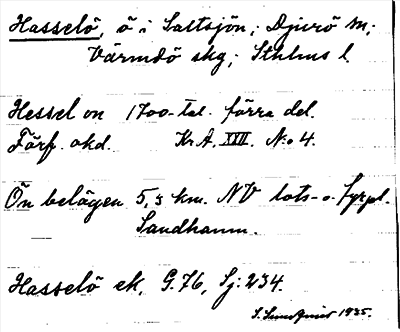 Hasselö, ö i Saltsjön, Djurö sn;
Värmdö skg; Sthlms l.
Hessel ön 1700-tal. förra del.
Förf. okd. Kr. A. XXII. N:o 4.
Ön belägen 5,5 km. NV lots- o. fyrpl.
Sandhamn.
Hasselö ek, G. 76, Sj: 234.
1935.